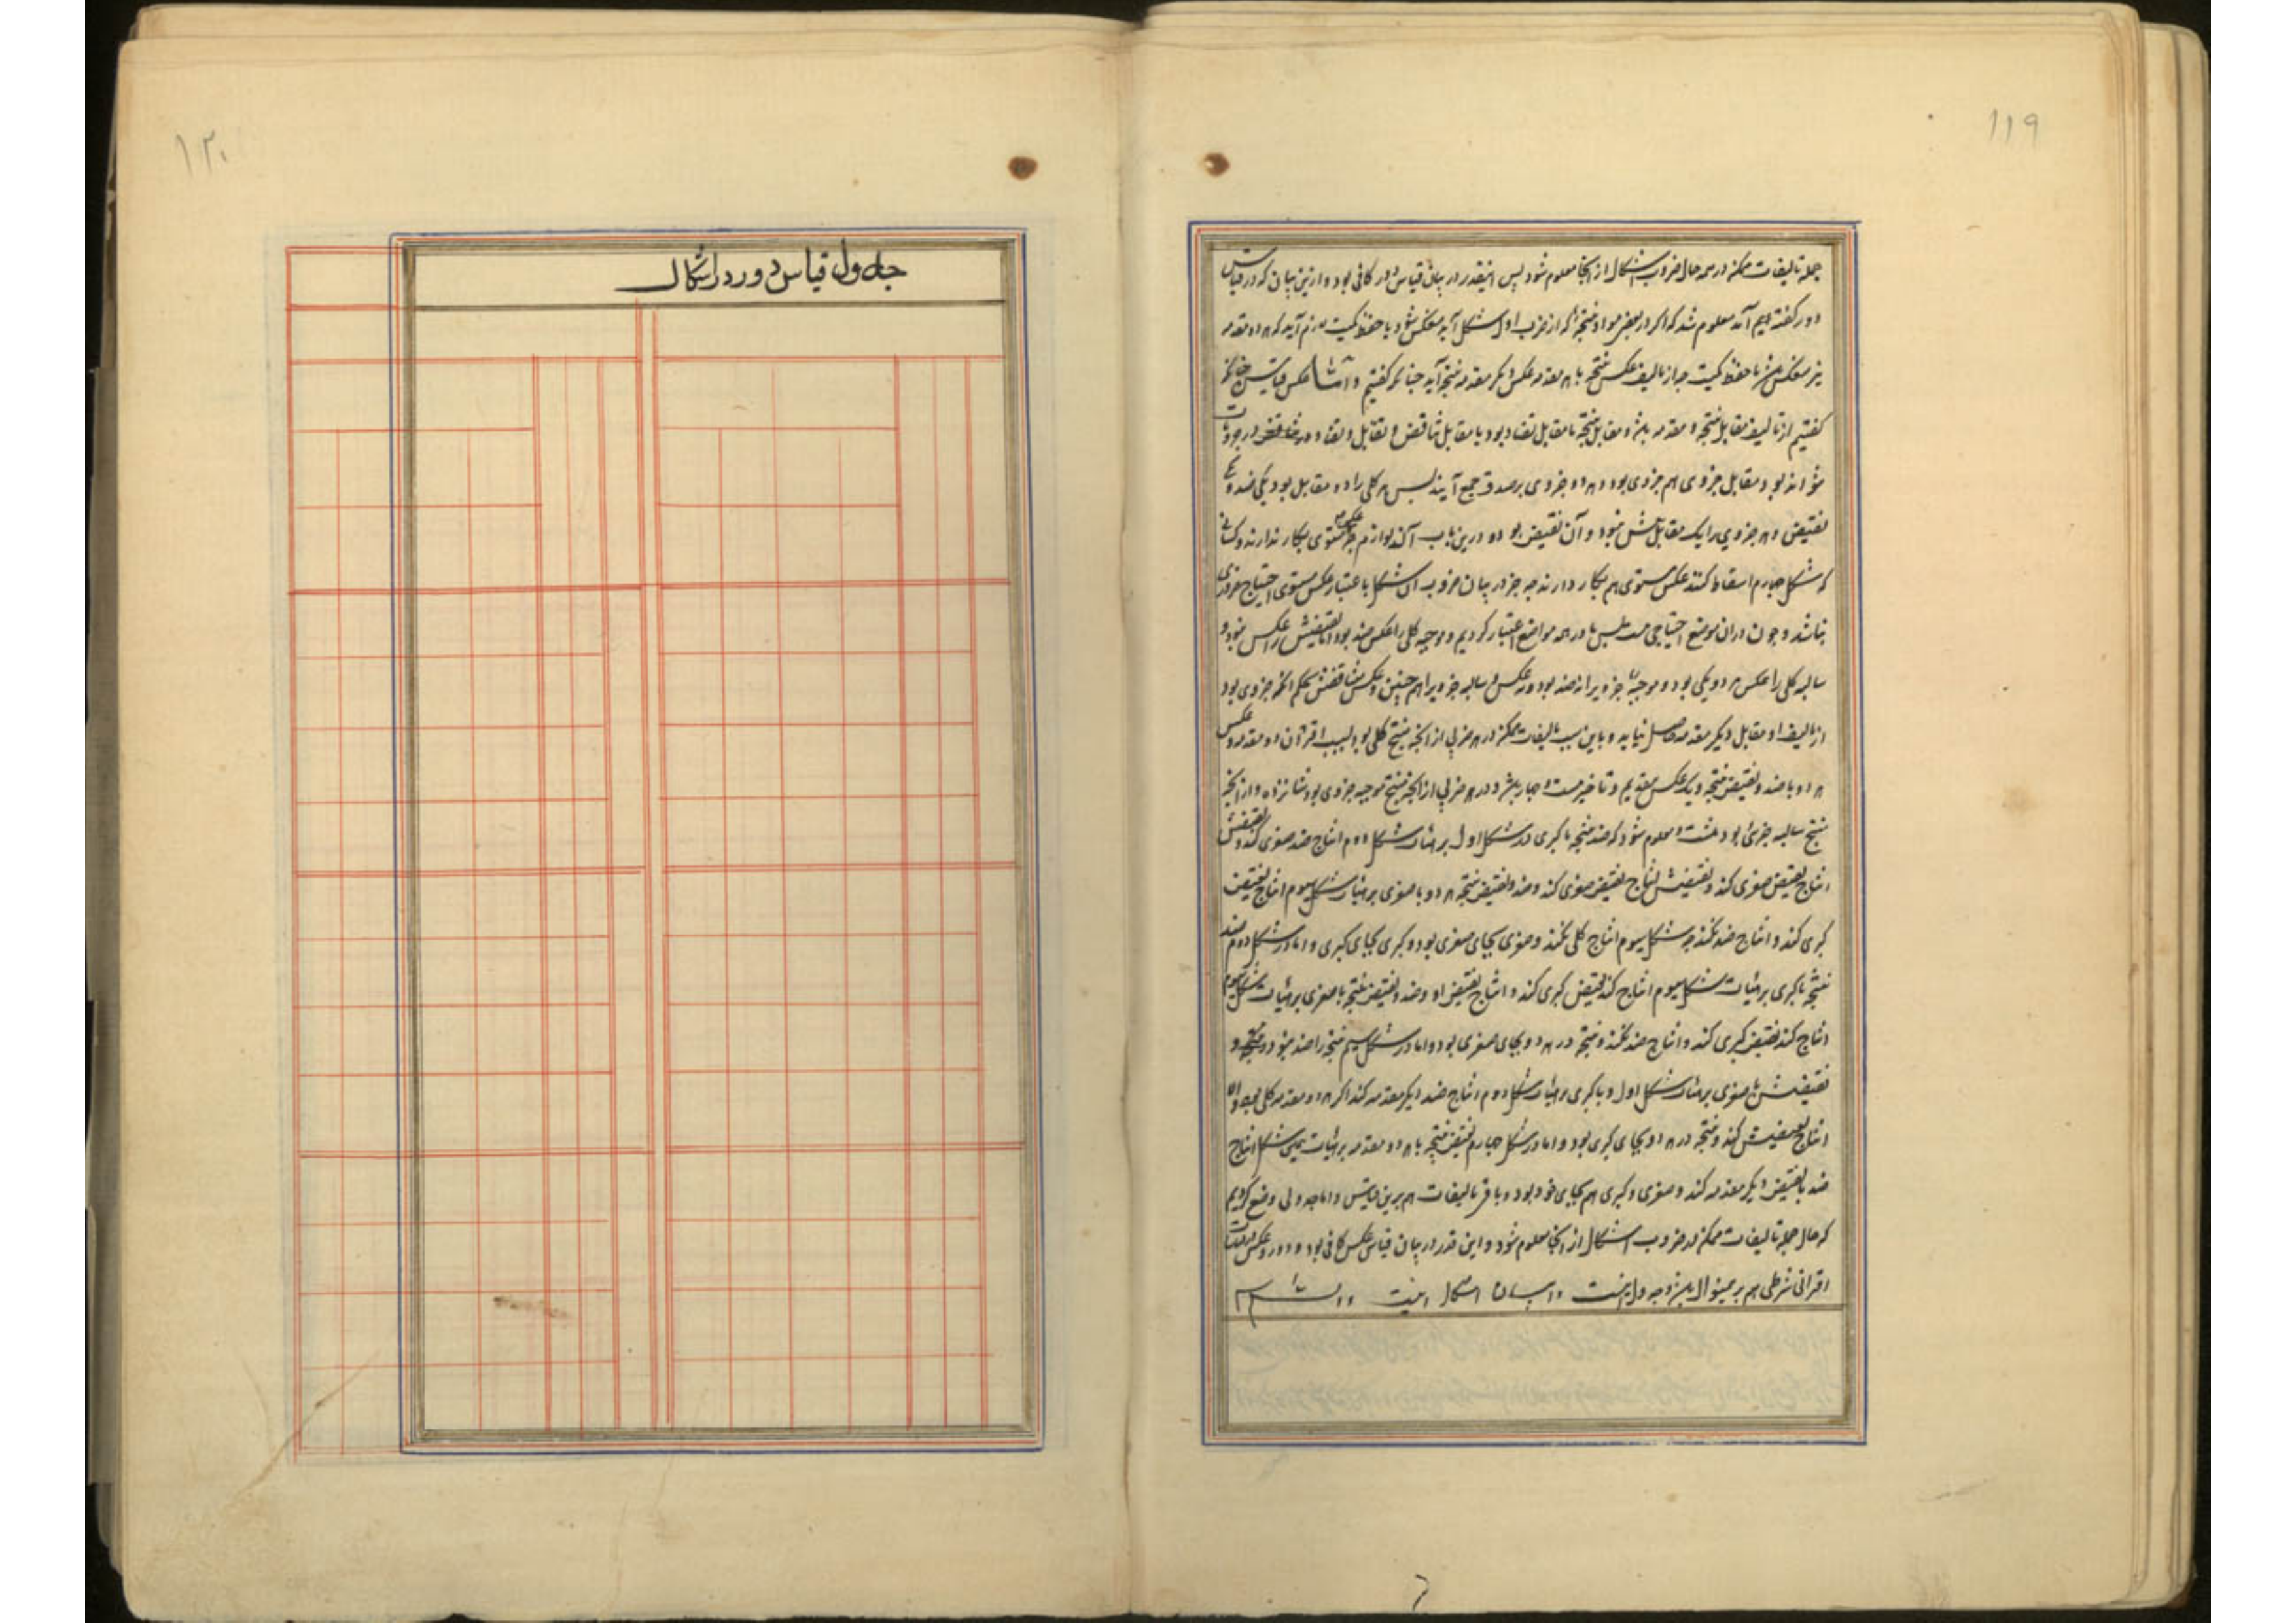 ۱۱۹
جمله تالیفات ممکنه در همه حال ضروب اشکال از آنجا معلوم شود پس اینقدر در بیان قیاس دور کافی بود و ازین بیان که در قیاس
دور گفته‌ایم آند معلوم شد که اگر در بعضی مواد نتیجهٔ که از ضرب اول شکل آید منعکس شود با حفظ کمیت لازم آید که هر دو مقدمه
نیز منعکس باشند با حفظ کمیت چه از تالیف عکس نتیجه با هر مقدمه عکس دیگر مقدمه نتیجه آید چنانکه گفتیم و اما عکس قیاس چنانکه
گفتیم از تالیف مقابل نتیجه و مقدمه باشد و مقابل نتیجه یا مقابل تضاد بود یا مقابل تناقض و تقابل و تضاد در جزویات
نتواند بود و مقابل جزوی هم جزوی بود و هر دو جزوی بر صدق جمع آیند پس هر کلی را دو مقابل بود یکی ضد و یکی
نقیض و هر جزوی را یک مقابل بیش نبود و آن نقیض بود و درین باب آکند لوازم جز عکس مستوی بکار ندارند و کسانی
که شکل چهارم اسقاط کنند عکس مستوی هم بکار دارند چه جز در بیان ضروب آن شکل با عتبار عکس مستوی احتیاج ضروری
نباشد و چون در آن موضع احتیاجی هست پس ما در همه مواضع اعتبار کردیم و موجبه کلی را عکس ضد بود و نقیضش را عکس نبود و
سالبه کلی را عکس هر دو یکی بود و موجبه جزویرا نه ضد بود و نه عکس و سالبه جزویرا هم چنین و عکس متناقضش بحکم آنکه جزوی بود
از تالیف او مقابل دیگر مقدمه حاصل نیاید و باین سبب تالیفات ممکنه در هر ضربی از آنچه منتج کلی بود بسبب اقتران دو مقدمه و عکس
هر دو با ضد و نقیض نتیجه و یک عکس بتقدیم و تاخیر بیست و چهار باشد و در هر ضربی از آنچه منتج موجبه جزوی بود شانزده و از آنچه
منتج سالبه جزئی بود هشت و معلوم شود که ضد نتیجه با کبری در شکل اول بر هیات شکل دوم انتاج ضد صغری کند و نقیضش
انتاج نقیض صغری کند و نقیضش انتاج نقیض صغری کند و ضد و نقیض نتیجه هر دو با صغری بر هیات شکل سیوم انتاج نقیض
کبری کند و انتاج ضد نکند چه شکل سیوم انتاج کلی نکند و صغری بجای صغری بود و کبری بجای کبری و اما در شکل دوم ضد
نتیجه با کبری بر هیات شکل سیوم انتاج کند نقیض کبری کند و انتاج نقیض او و ضد و نقیض نتیجه با صغری بر هیات شکل سیوم
انتاج کند نقیض کبری کند و انتاج ضد نکند و نتیجه در هر دو بجای صغری بود و اما در شکل سیم نتیجه را ضد نبود و
نقیضش با صغری بر هیات شکل اول و با کبری بر هیات شکل دوم انتاج ضد دیگر مقدمه کند اگر هر دو مقدمه کلی بود و الا
انتاج نقیضش کند و نتیجه در هر دو بجای کبری بود و اما در شکل چهارم نقیض نتیجه با هر دو مقدمه بر هیات همین شکل انتاج
ضد یا نقیض دیگر مقدمه کند و صغری و کبری هم بجای خود بود و باقی تالیفات هم برین قیاس و اما جدولی وضع کردیم
که حال جمله تالیفات ممکنه در ضروب اشکال از آنجا معلوم شود و این قدر در بیان قیاس عکس کافی بود و دور و عکس
اقترانی شرطی هم برینمنوال باشد و جدول اینست
۱۲۰
جداول قیاس دور در اشکال